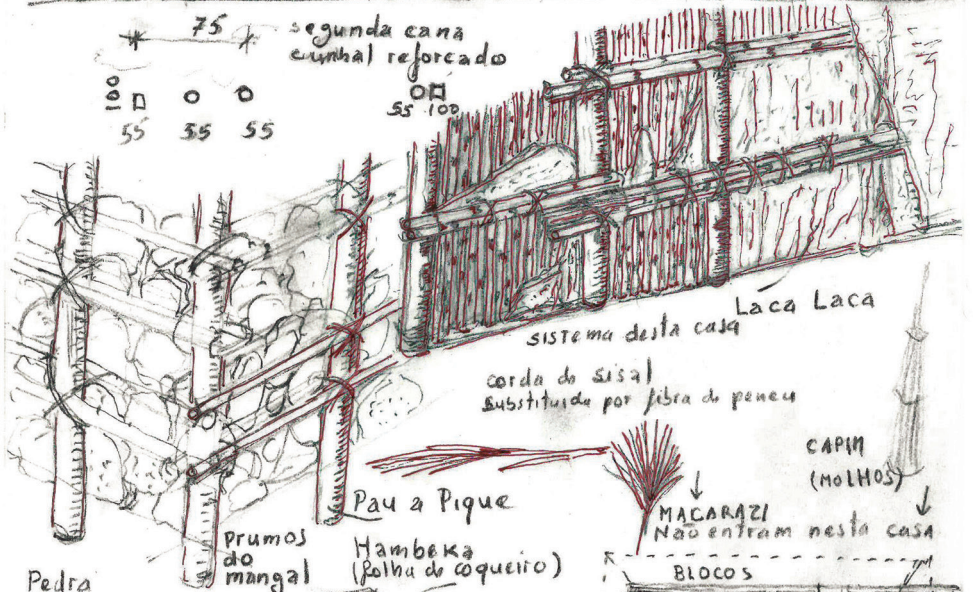 75
segunda cana
cunhal reforcado
55 55 55
55 100
Laca Laca
sistema desta casa
corda de sisal
substituida por fibra de peneu
CAPIM
(MOLHOS)
Pau a Pique
MACARAZI
Não entram nesta casa
prumos
do
mangal
Hambeka
(folha de coqueiro)
BLOCOS
Pedra